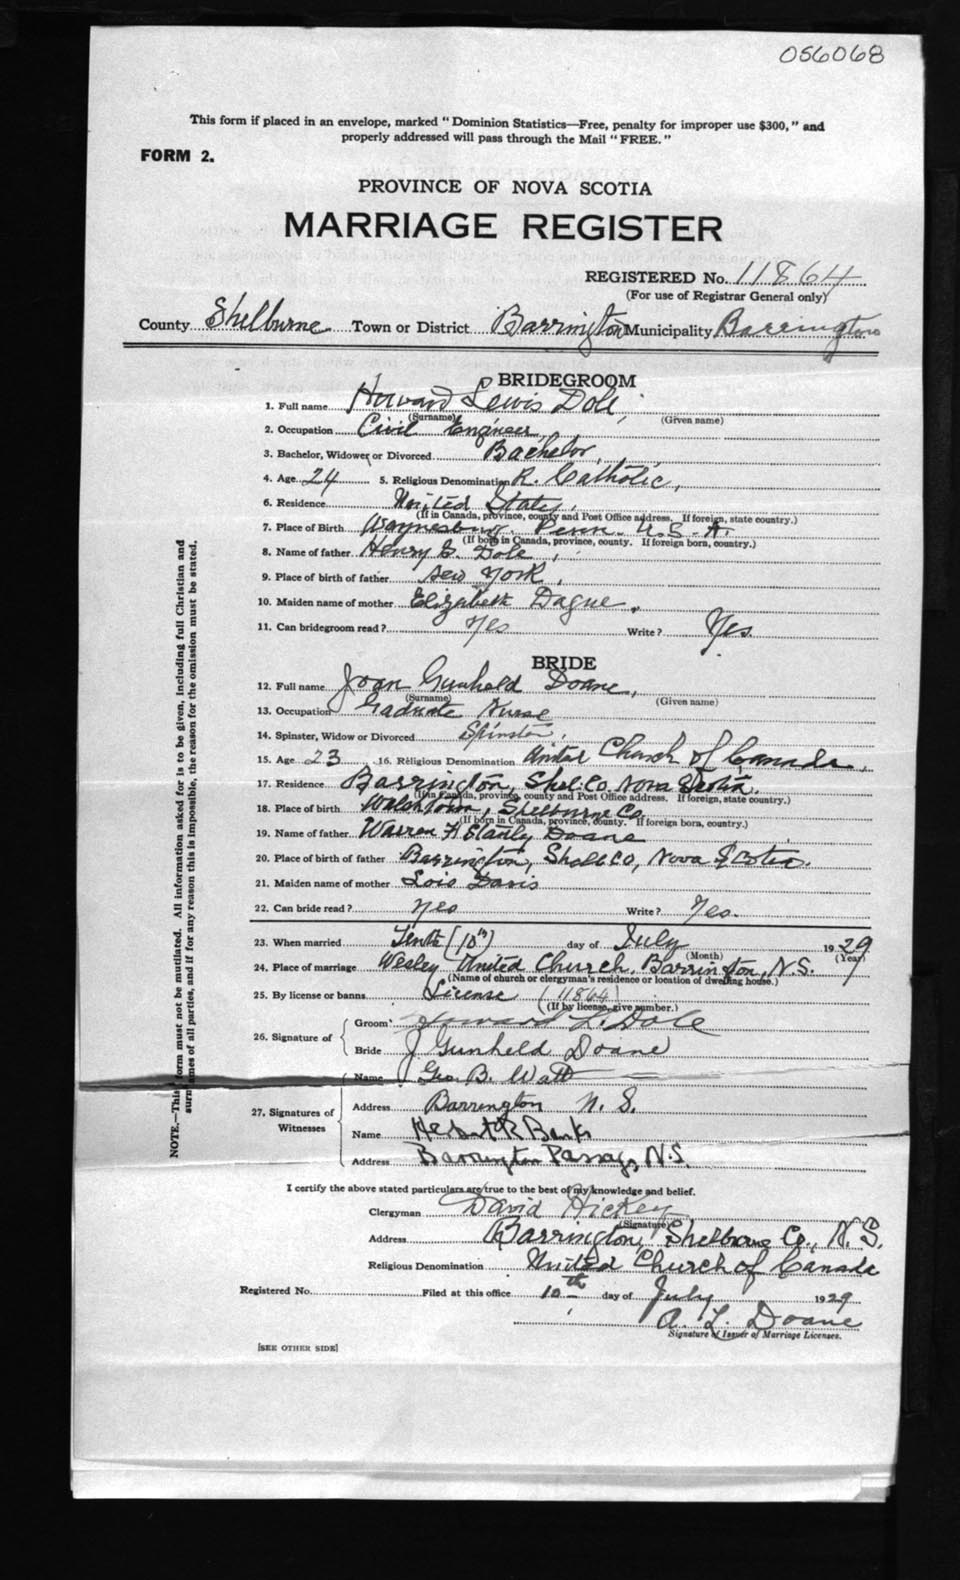 056068
This form if placed in an envelope, marked "Dominion Statistics—Free, penalty for improper use $300," and
properly addressed will pass through the Mail "FREE."
FORM 2.
PROVINCE OF NOVA SCOTIA
MARRIAGE REGISTER
REGISTERED No. 11864
(For use of Registrar General only)
County Shelburne Town or District Barrington Municipality Barrington
BRIDEGROOM
1. Full name Howard Lewis Dole,
(Surname) (Given name)
2. Occupation Civil Engineer
3. Bachelor, Widower or Divorced Bachelor,
4. Age 24 5. Religious Denomination R. Catholic,
6. Residence United States,
(If in Canada, province, county and Post Office address. If foreign, state country.)
7. Place of Birth Waynesburg Penn. U.S.A.
(If born in Canada, province, county. If foreign born, country.)
8. Name of father Henry Dole,
9. Place of birth of father New York,
10. Maiden name of mother Elizabeth Dague,
11. Can bridegroom read? Yes Write? Yes.
BRIDE
12. Full name Joan Gunheld Doane,
(Surname) (Given name)
13. Occupation Graduate Nurse
14. Spinster, Widow or Divorced Spinster,
15. Age 23 16. Religious Denomination United Church of Canada,
17. Residence Barrington, Shel. Co. Nova Scotia.
(If in Canada, province, county and Post Office address. If foreign, state country.)
18. Place of birth Welshtown, Shelburne Co.
(If born in Canada, province, county. If foreign born, country.)
19. Name of father Warren Doane
20. Place of birth of father Barrington, Shelb Co, Nova Scotia.
21. Maiden name of mother Lois Davis
22. Can bride read? Yes Write? Yes.
23. When married Tenth (10th) day of July 1929
(Month) (Year)
24. Place of marriage Wesley United Church, Barrington, N.S.
(Name of church or clergyman's residence or location of dwelling house.)
25. By license or banns License (11864)
(If by license, give number.)
26. Signature of Groom Howard L. Dole
Bride J Gunheld Doane
27. Signatures of Witnesses Name Geo. B. Watt
Address Barrington N. S.
Name Banks
Address Barrington Passage N.S.
I certify the above stated particulars are true to the best of my knowledge and belief.
Clergyman David Hickey
(Signature)
Address Barrington, Shelburne Co., N.S.
Religious Denomination United Church of Canada
Registered No. Filed at this office 10th day of July 1929
A. L. Doane
Signature of Issuer of Marriage Licenses.
[SEE OTHER SIDE]
NOTE.—This form must not be mutilated. All information asked for is to be given, including full Christian and
surnames of all parties, and if for any reason this is impossible, the reason for the omission must be stated.